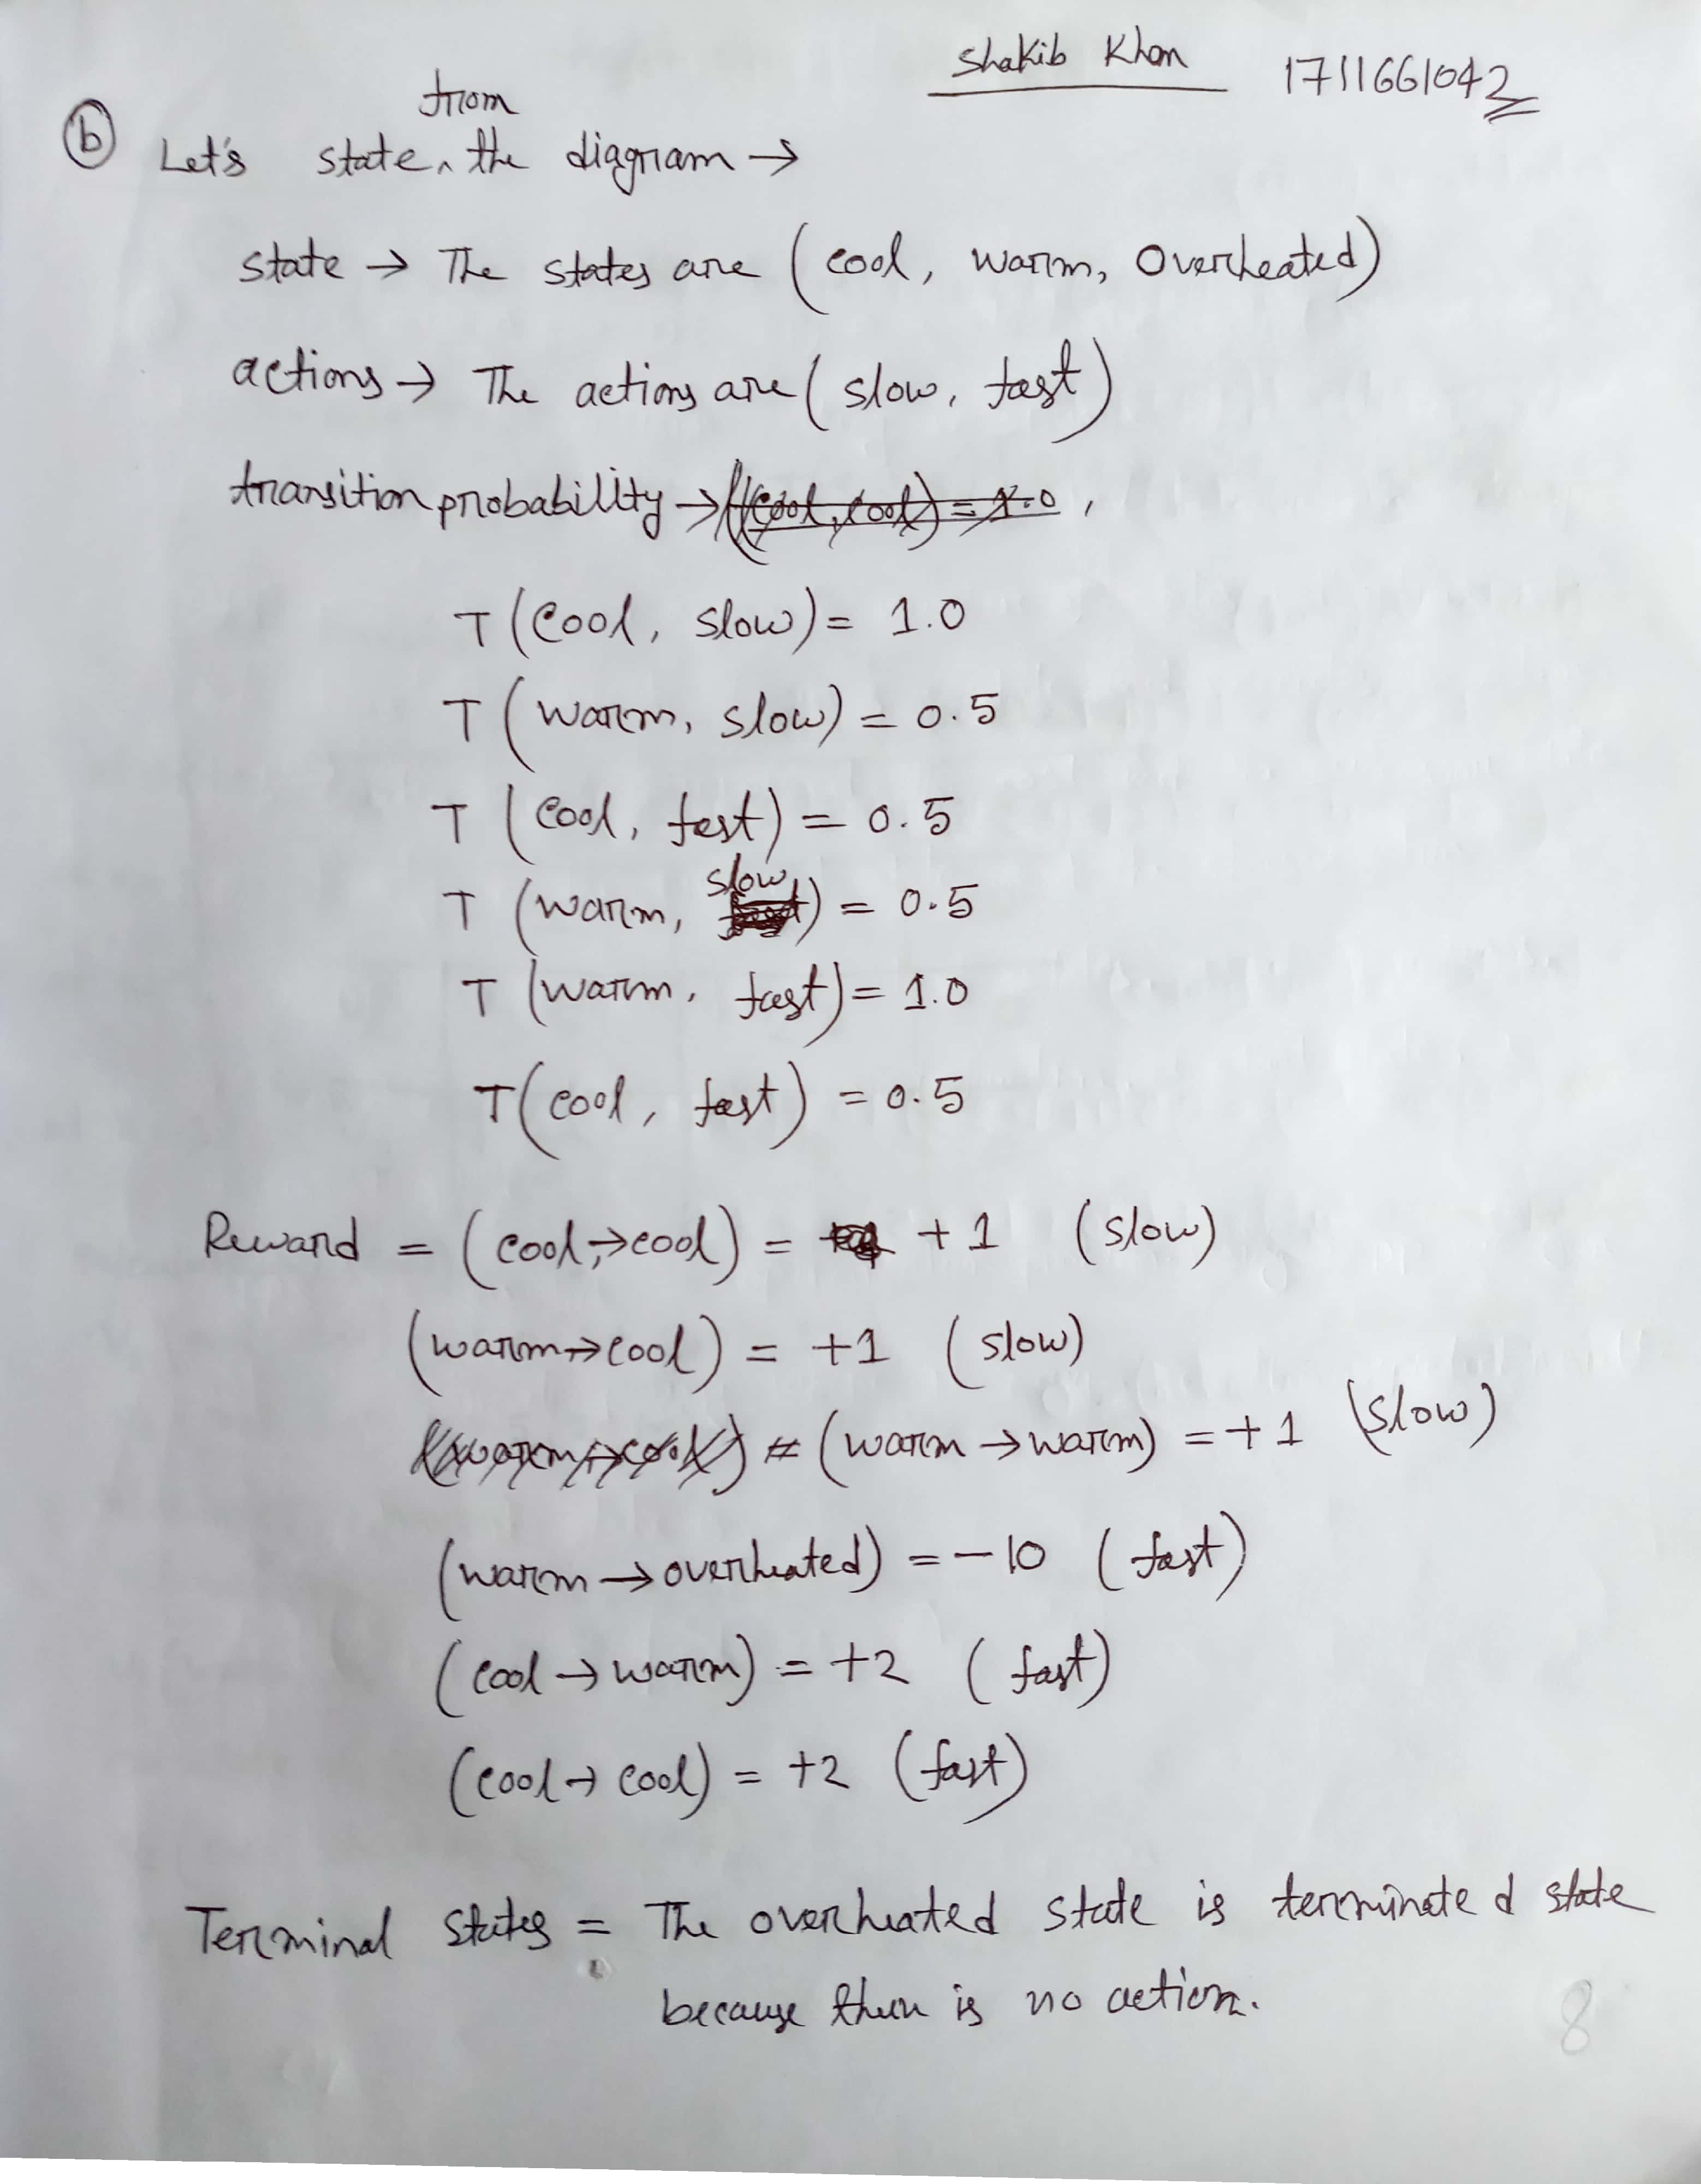 Shakib Khan 1711661042
from
(b) Let's state ^ the diagram →
state → The states are (cool, warm, Overheated)
actions → The actions are (slow, fast)
transition probability → ((cool, cool) = 1.0,
T (Cool, slow) = 1.0
T (warm, slow) = 0.5
T (cool, fast) = 0.5
slow
T (warm, ) = 0.5
T (warm, fast) = 1.0
T (cool, fast) = 0.5
Reward = (cool → cool) = +1 (slow)
(warm → cool) = +1 (slow)
(warm → cool) = (warm → warm) = +1 (slow)
(warm → overheated) = -10 (fast)
(cool → warm) = +2 (fast)
(cool → cool) = +2 (fast)
Terminal states = The overheated state is terminated state
because there is no action.
8